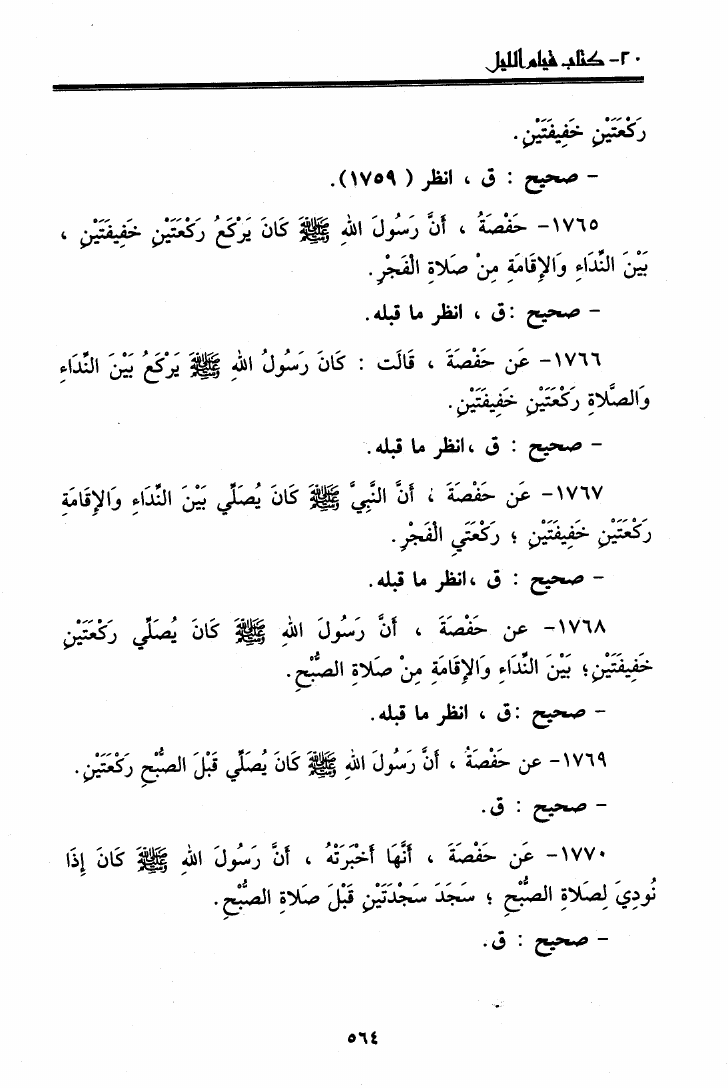 ٢٠- كتاب قيام الليل
رَكْعَتَيْنِ خَفِيفَتَيْنِ.
- صحيح : ق ، انظر ( ١٧٥٩).
١٧٦٥- حَفْصَةُ ، أَنَّ رَسُولَ اللهِ ﷺ كَانَ يَرْكَعُ رَكْعَتَيْنِ خَفِيفَتَيْنِ ،
بَيْنَ النِّدَاءِ وَالإِقَامَةِ مِنْ صَلاةِ الْفَجْرِ.
- صحيح :ق ، انظر ما قبله.
١٧٦٦- عَن حَفْصَةَ ، قَالَت : كَانَ رَسُولُ اللهِ ﷺ يَرْكَعُ بَيْنَ النِّدَاءِ
وَالصَّلاةِ رَكْعَتَيْنِ خَفِيفَتَيْنِ.
- صحيح : ق ،انظر ما قبله.
١٧٦٧- عَن حَفْصَةَ ، أَنَّ النَّبِيَّ ﷺ كَانَ يُصَلِّي بَيْنَ النِّدَاءِ وَالإِقَامَةِ
رَكْعَتَيْنِ خَفِيفَتَيْنِ ؛ رَكْعَتَيِ الْفَجْرِ.
- صحيح : ق ،انظر ما قبله.
١٧٦٨- عن حَفْصَةَ ، أَنَّ رَسُولَ اللهِ ﷺ كَانَ يُصَلِّي رَكْعَتَيْنِ
خَفِيفَتَيْنِ؛ بَيْنَ النِّدَاءِ وَالإِقَامَةِ مِنْ صَلاةِ الصُّبْحِ.
- صحيح :ق ، انظر ما قبله.
١٧٦٩- عن حَفْصَةُ ، أَنَّ رَسُولَ اللهِ ﷺ كَانَ يُصَلِّي قَبْلَ الصُّبْحِ رَكْعَتَيْنِ.
- صحيح : ق.
١٧٧٠- عَن حَفْصَةَ ، أَنَّهَا أَخْبَرَتْهُ ، أَنَّ رَسُولَ اللهِ ﷺ كَانَ إِذَا
نُودِيَ لِصَلاةِ الصُّبْحِ ؛ سَجَدَ سَجْدَتَيْنِ قَبْلَ صَلاةِ الصُّبْحِ.
- صحيح : ق.
٥٦٤